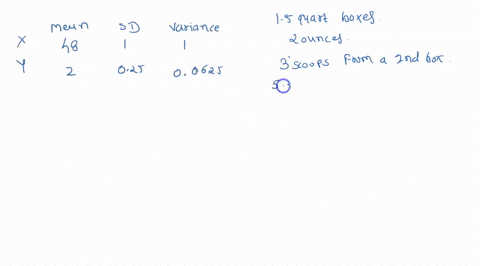 Mean SD Variance
X 48 1 1
Y 2 0.25 0.0625
1.5 quart boxes.
2 ounces.
3 scoops Form a 2nd box.
S